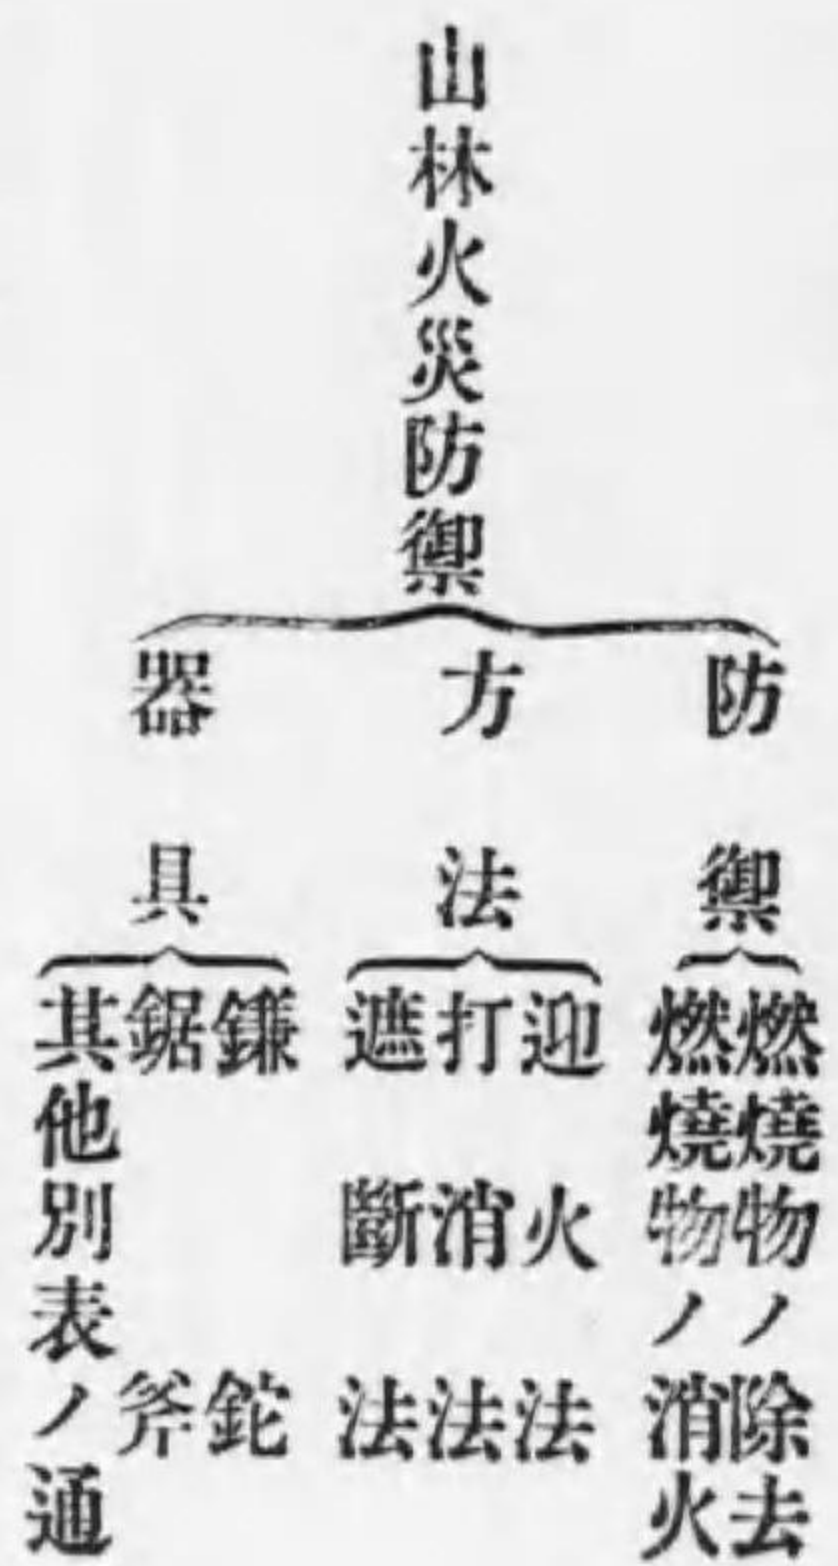 山林火災防禦
防禦
燃燒物ノ除去
燃燒物ノ消火
方法
迎火法
打消法
遮斷法
器具
鎌 鉈
鋸 斧
其他別表ノ通